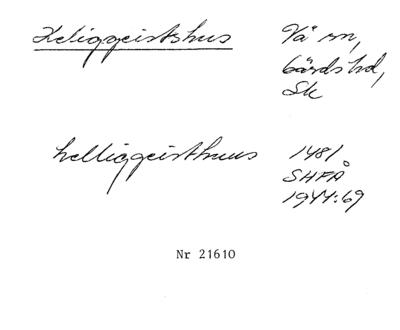 Heliggeistshus
Vä sn,
Gärds hd,
Sk
helliggeisthuus
1481
SHFÅ
1944:69
Nr 21610